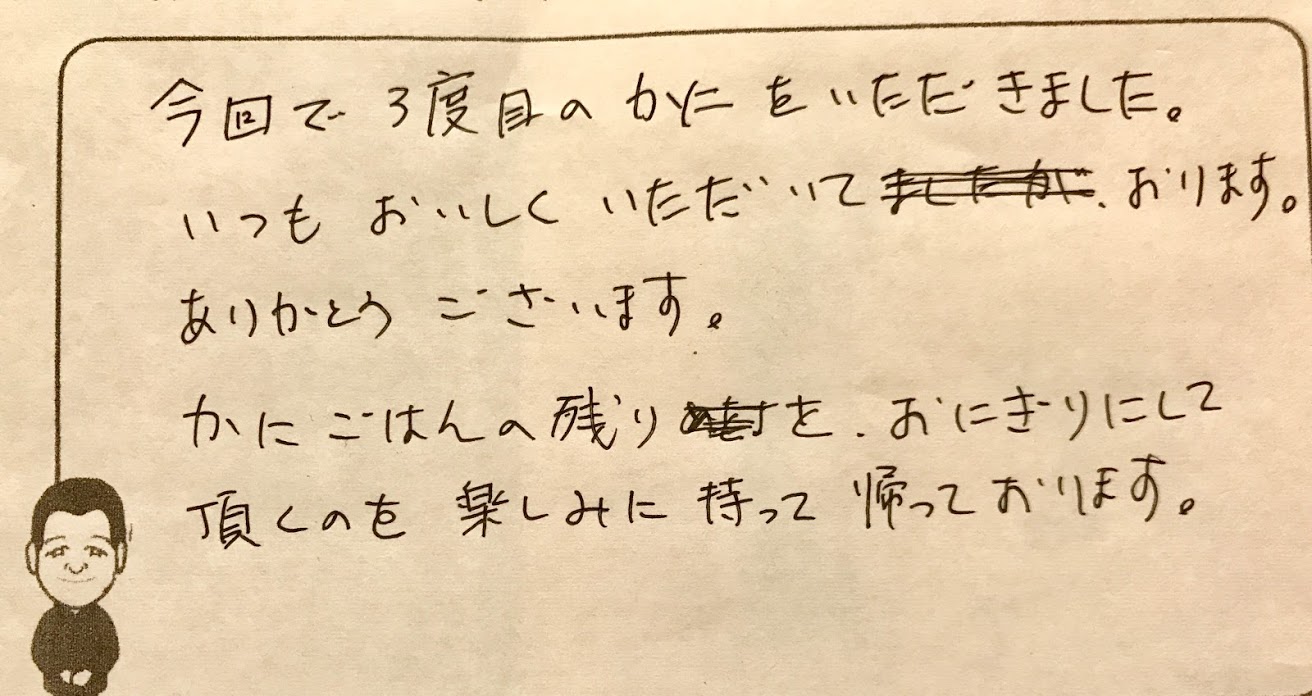 今回で3度目のかにをいただきました。
いつもおいしくいただいております。
ありがとうございます。
かにごはんの残りを、おにぎりにして
頂くのを楽しみに持って帰っております。